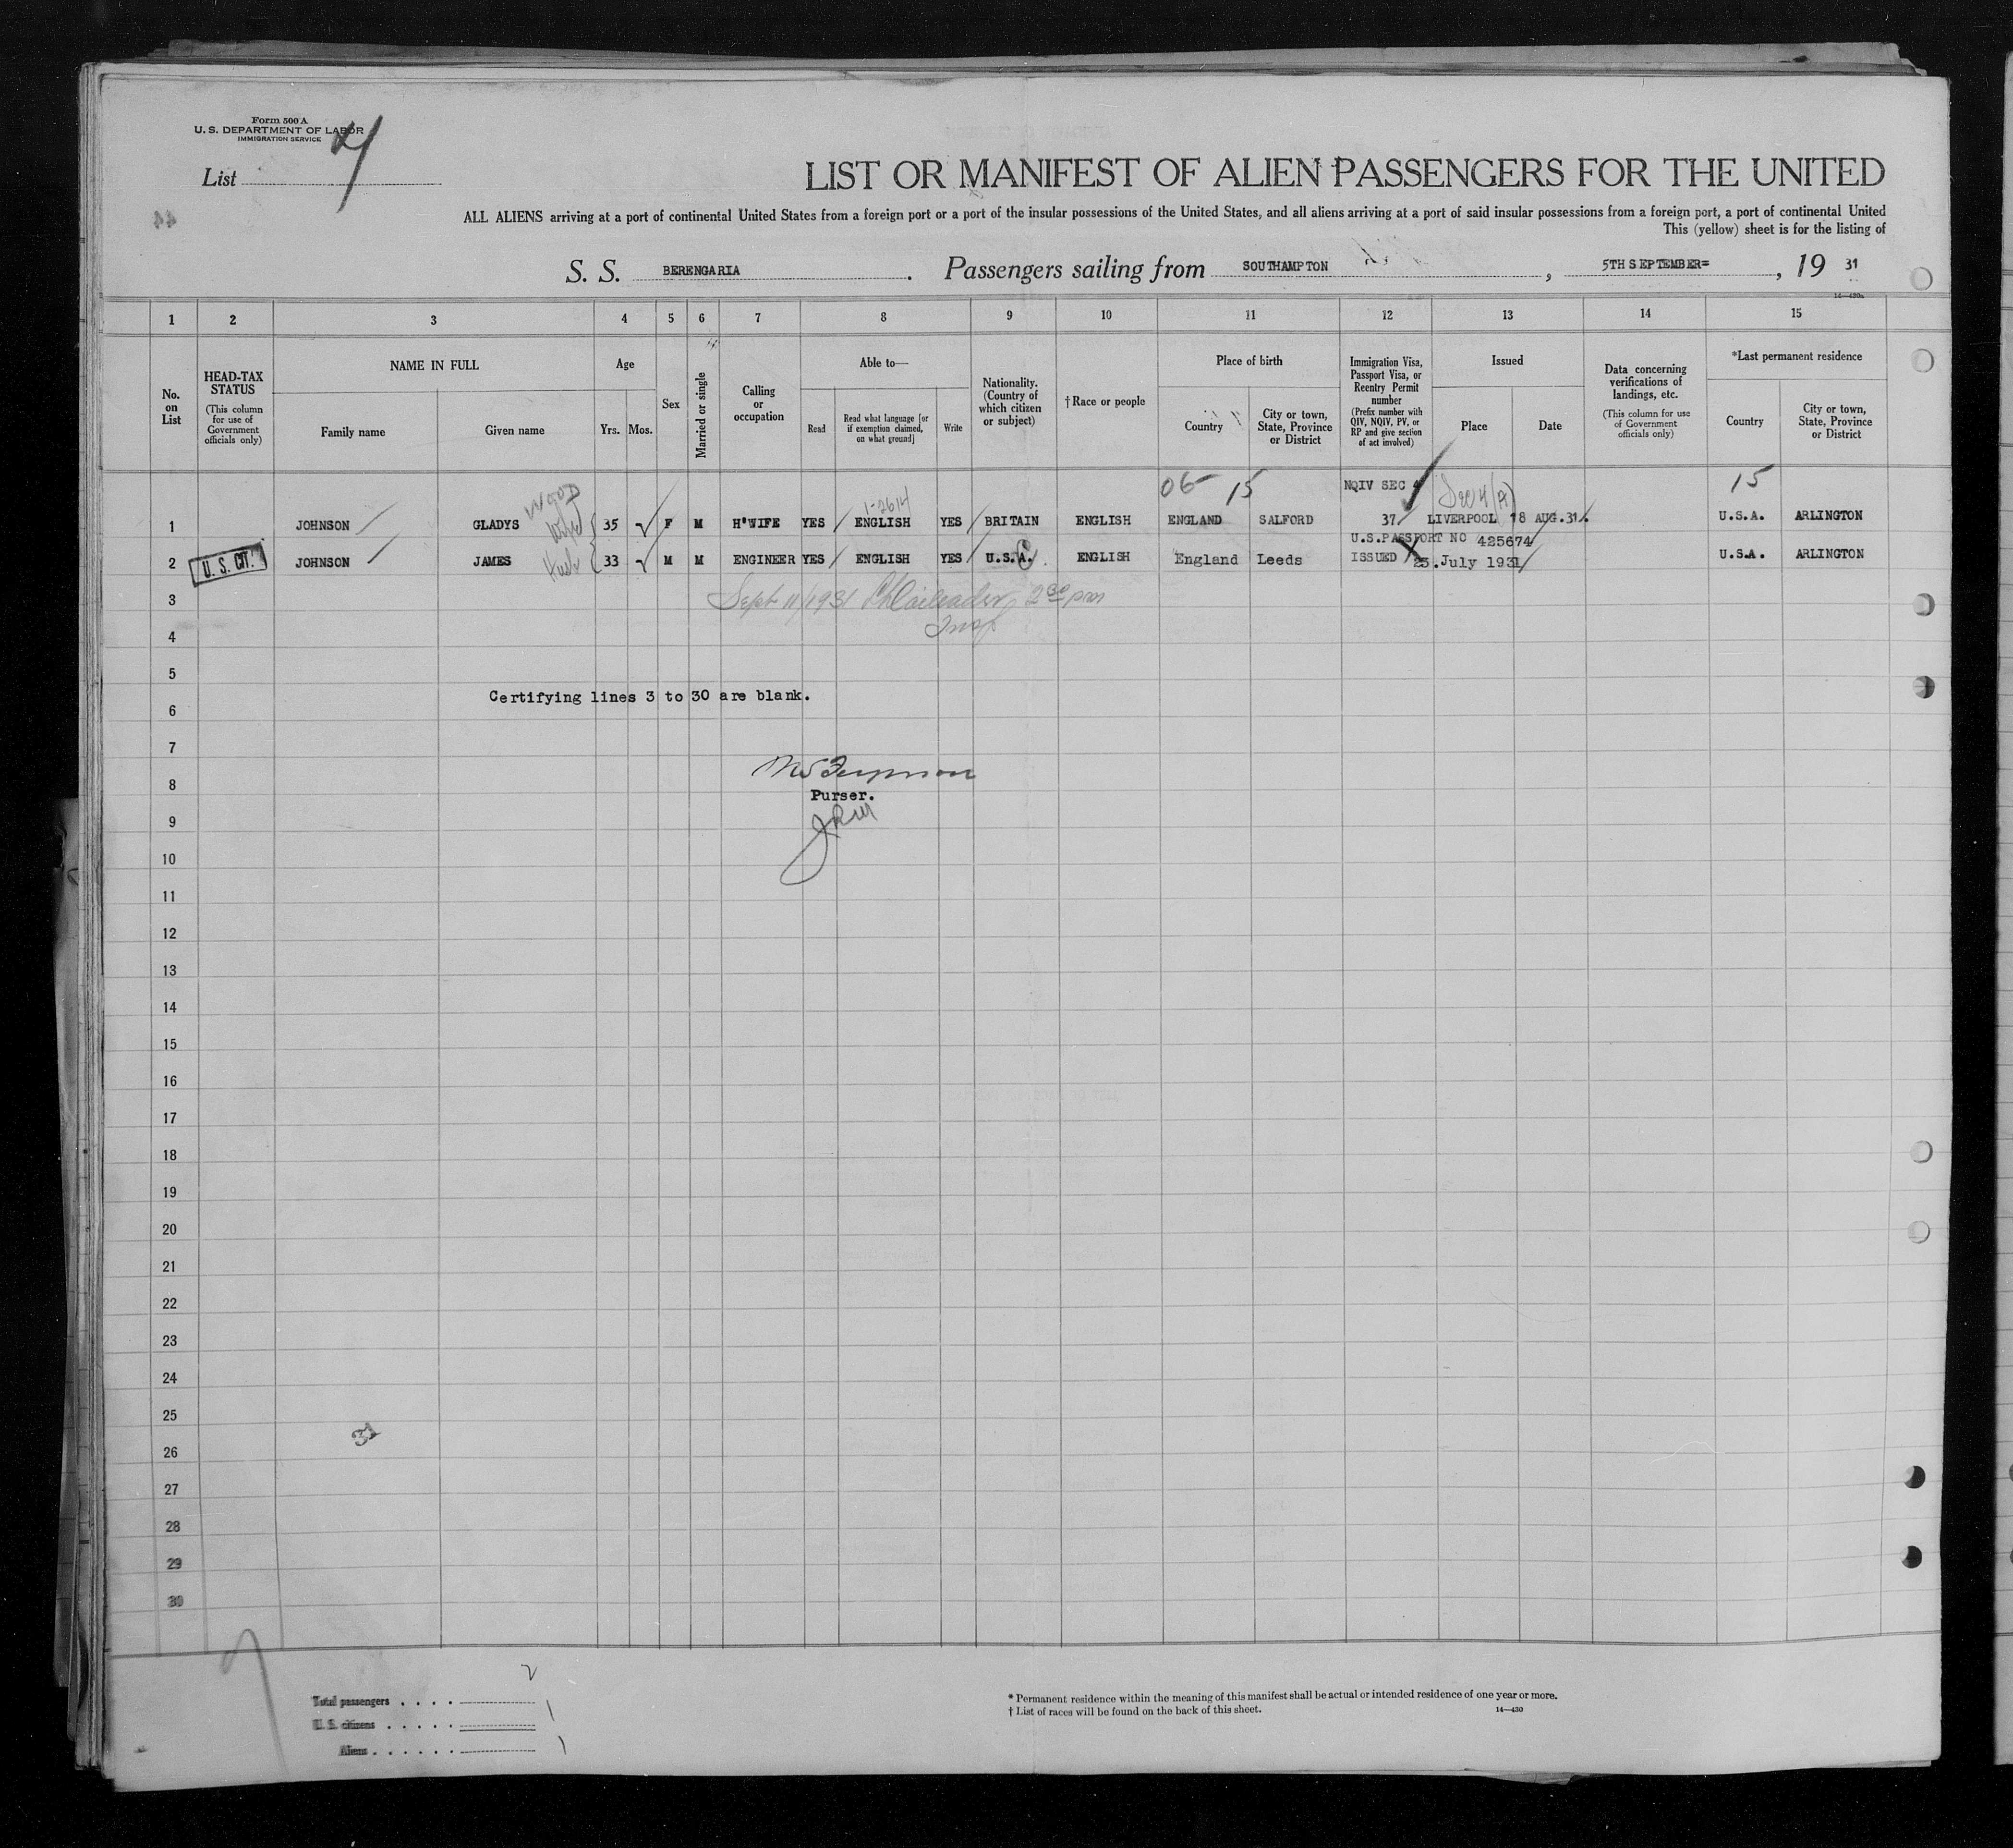 Form 500 A
U. S. DEPARTMENT OF LABOR
IMMIGRATION SERVICE
List 4
LIST OR MANIFEST OF ALIEN PASSENGERS FOR THE UNITED
ALL ALIENS arriving at a port of continental United States from a foreign port or a port of the insular possessions of the United States, and all aliens arriving at a port of said insular possessions from a foreign port, a port of continental United
This (yellow) sheet is for the listing of
S. S. BERENGARIA. Passengers sailing from SOUTHAMPTON, 5TH SEPTEMBER=, 19 31
1 2 3 4 5 6 7 8 9 10 11 12 13 14 15
No. on List
HEAD-TAX STATUS (This column for use of Government officials only)
NAME IN FULL
Family name
Given name
Age
Yrs. Mos.
Sex
Married or single
Calling or occupation
Able to—
Read
Read what language [or if exemption claimed, on what ground]
Write
Nationality. (Country of which citizen or subject)
† Race or people
Place of birth
Country
City or town, State, Province or District
Immigration Visa, Passport Visa, or Reentry Permit number (Prefix number with QIV, NQIV, PV, or RP and give section of act involved)
Issued
Place
Date
Data concerning verifications of landings, etc. (This column for use of Government officials only)
*Last permanent residence
Country
City or town, State, Province or District
06 15 NQIV SEC 4 Sec 4(A) 15
1 JOHNSON GLADYS wife 35 F M H'WIFE YES ENGLISH YES BRITAIN ENGLISH ENGLAND SALFORD 37 LIVERPOOL 18 AUG.31. U.S.A. ARLINGTON
U.S.PASSPORT NO 425674
2 U. S. CIT. JOHNSON JAMES Husb 33 M M ENGINEER YES ENGLISH YES U.S.A. ENGLISH England Leeds ISSUED 23.July 1931 U.S.A. ARLINGTON
3 Sept 11/1931 2 30 pm
4 Insp
5
Certifying lines 3 to 30 are blank.
6
7
8
Purser.
9
10
11
12
13
14
15
16
17
18
19
20
21
22
23
24
25
26
27
28
29
30
Total passengers . . . . 2
U. S. citizens . . . . . 1
Aliens . . . . . . 1
* Permanent residence within the meaning of this manifest shall be actual or intended residence of one year or more.
† List of races will be found on the back of this sheet.
14—430